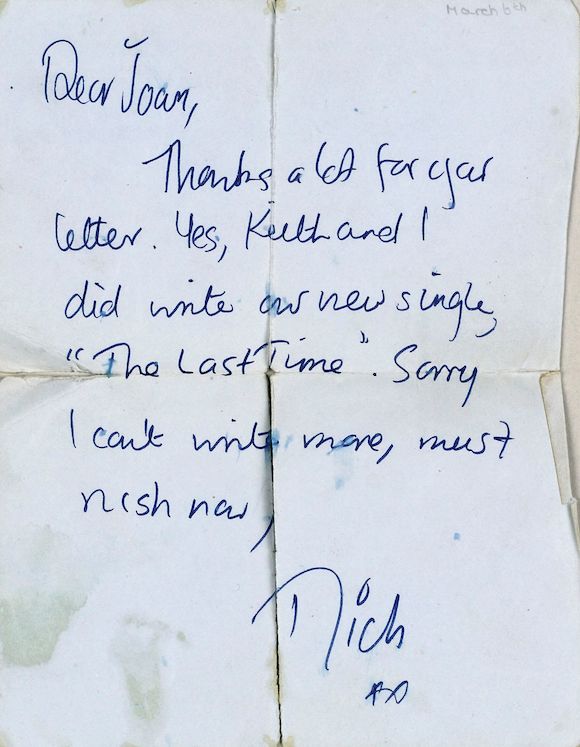 March 6th
Dear Joan,
Thanks a lot for your
letter. Yes, Keith and I
did write our new single,
"The Last Time". Sorry
I can't write more, must
rush now,
Mick